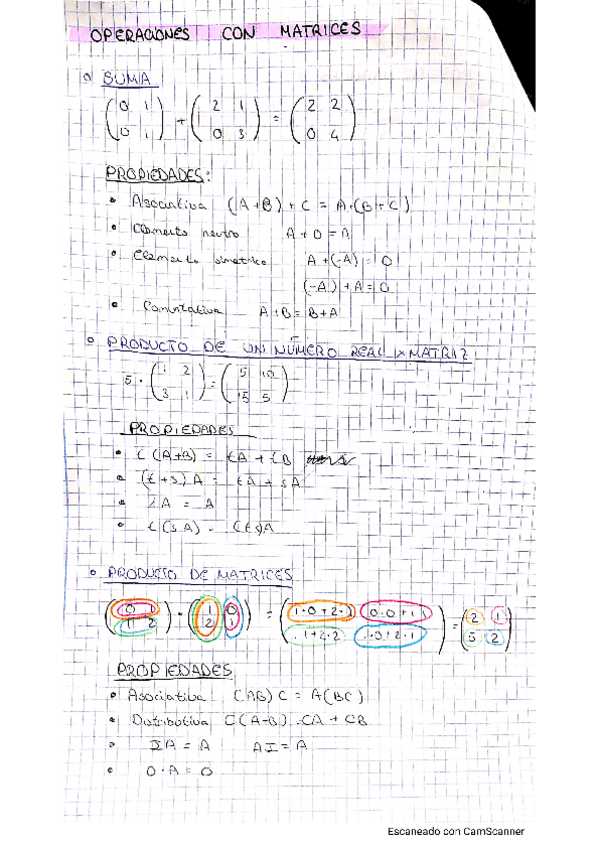 OPERACIONES CON MATRICES
SUMA
(0 1 / 0 1) + (2 1 / 0 3) = (2 2 / 0 4)
PROPIEDADES:
• Asociativa (A+B)+C = A+(B+C)
• Elemento neutro A+0=A
• Elemento simétrico A+(-A)=0
(-A)+A=0
• Conmutativa A+B=B+A
PRODUCTO DE UN NÚMERO REAL x MATRIZ
5·(1 2 / 3 1)=(5 10 / 15 5)
PROPIEDADES
• t(A+B) = tA + tB
• (t+s)A = tA + sA
• 1A = A
• t(sA) = (ts)A
PRODUCTO DE MATRICES
(0 1 / 1 2)·(1 0 / 2 1) = (1·0+2·1 0·0+1·1 / 1·1+2·2 1·0+2·1) = (2 1 / 5 2)
PROPIEDADES
• Asociativa (AB)C = A(BC)
• Distributiva C(A+B)=CA + CB
• IA = A AI = A
• 0·A = 0
Escaneado con CamScanner